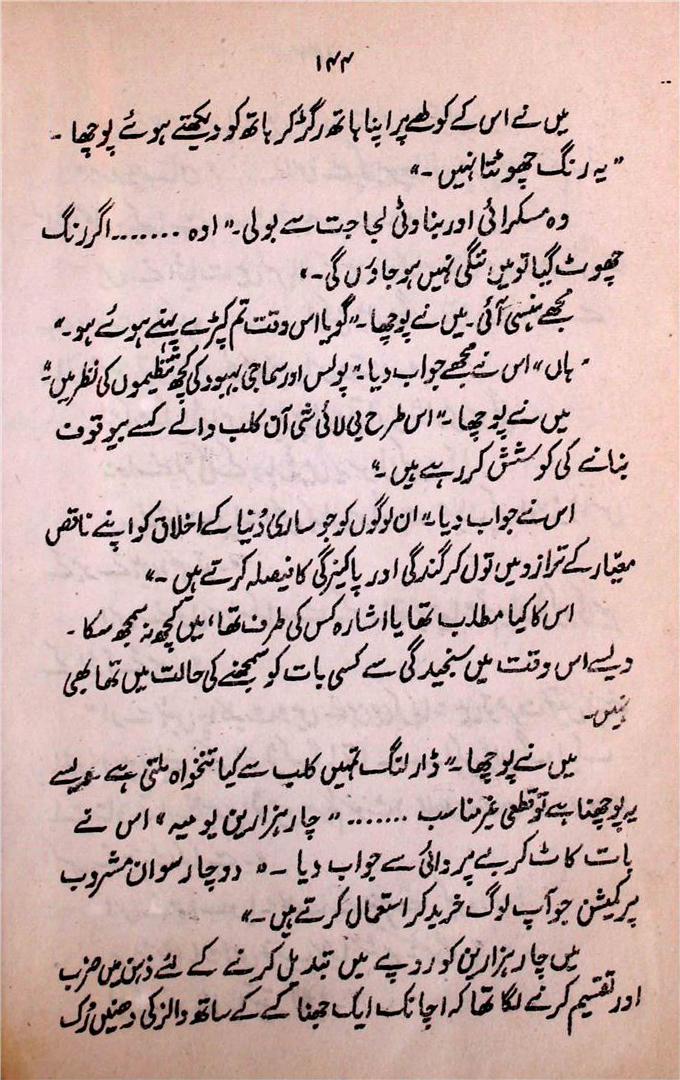 ۱۴۴
میں نے اس کے کولھے پر اپنا ہاتھ رگڑ کر ہاتھ کو دیکھتے ہوئے پوچھا ۔
" یہ رنگ چھوٹتا نہیں ۔"
وہ مسکرائی اور بناوٹی لجاجت سے بولی۔" اوہ ....... اگر رنگ
چھوٹ گیا تو میں ننگی نہیں ہو جاؤں گی ۔"
مجھے ہنسی آئی۔ میں نے پوچھا ۔" گویا اس وقت تم کپڑے پہنے ہوئے ہو۔"
" ہاں " اس نے مجھے جواب دیا ۔" پولس اور سماجی بہبود کی کچھ تنظیموں کی نظر میں ۔"
میں نے پوچھا ۔" اس طرح بی لائی شی آن کلب والے کسے بیوقوف
بنانے کی کوشش کر رہے ہیں ۔"
اس نے جواب دیا ۔" ان لوگوں کو جو ساری دُنیا کے اخلاق کو اپنے ناقص
معیار کے ترازو میں تول کر گندگی اور پاکیزگی کا فیصلہ کرتے ہیں ۔"
اس کا کیا مطلب تھا یا اشارہ کس کی طرف تھا ، میں کچھ نہ سمجھ سکا ۔
ویسے اس وقت میں سنجیدگی سے کسی بات کو سمجھنے کی حالت میں تھا بھی
نہیں۔
میں نے پوچھا ۔" ڈارلنگ تمہیں کلب سے کیا تنخواہ ملتی ہے ویسے
یہ پوچھنا ہے تو قطعی غیر مناسب ......." " چار ہزار ین یومیہ " اس نے
بات کاٹ کر بے پروائی سے جواب دیا ۔" دو چار سو ان مشروب
پر کمیشن جو آپ لوگ خرید کر استعمال کرتے ہیں ۔"
میں چار ہزار ین کو روپے میں تبدیل کرنے کے لئے ذہن میں ضرب
اور تقسیم کرنے لگا تھا کہ اچانک ایک جھناکے کے ساتھ والز کی دھنیں رُک